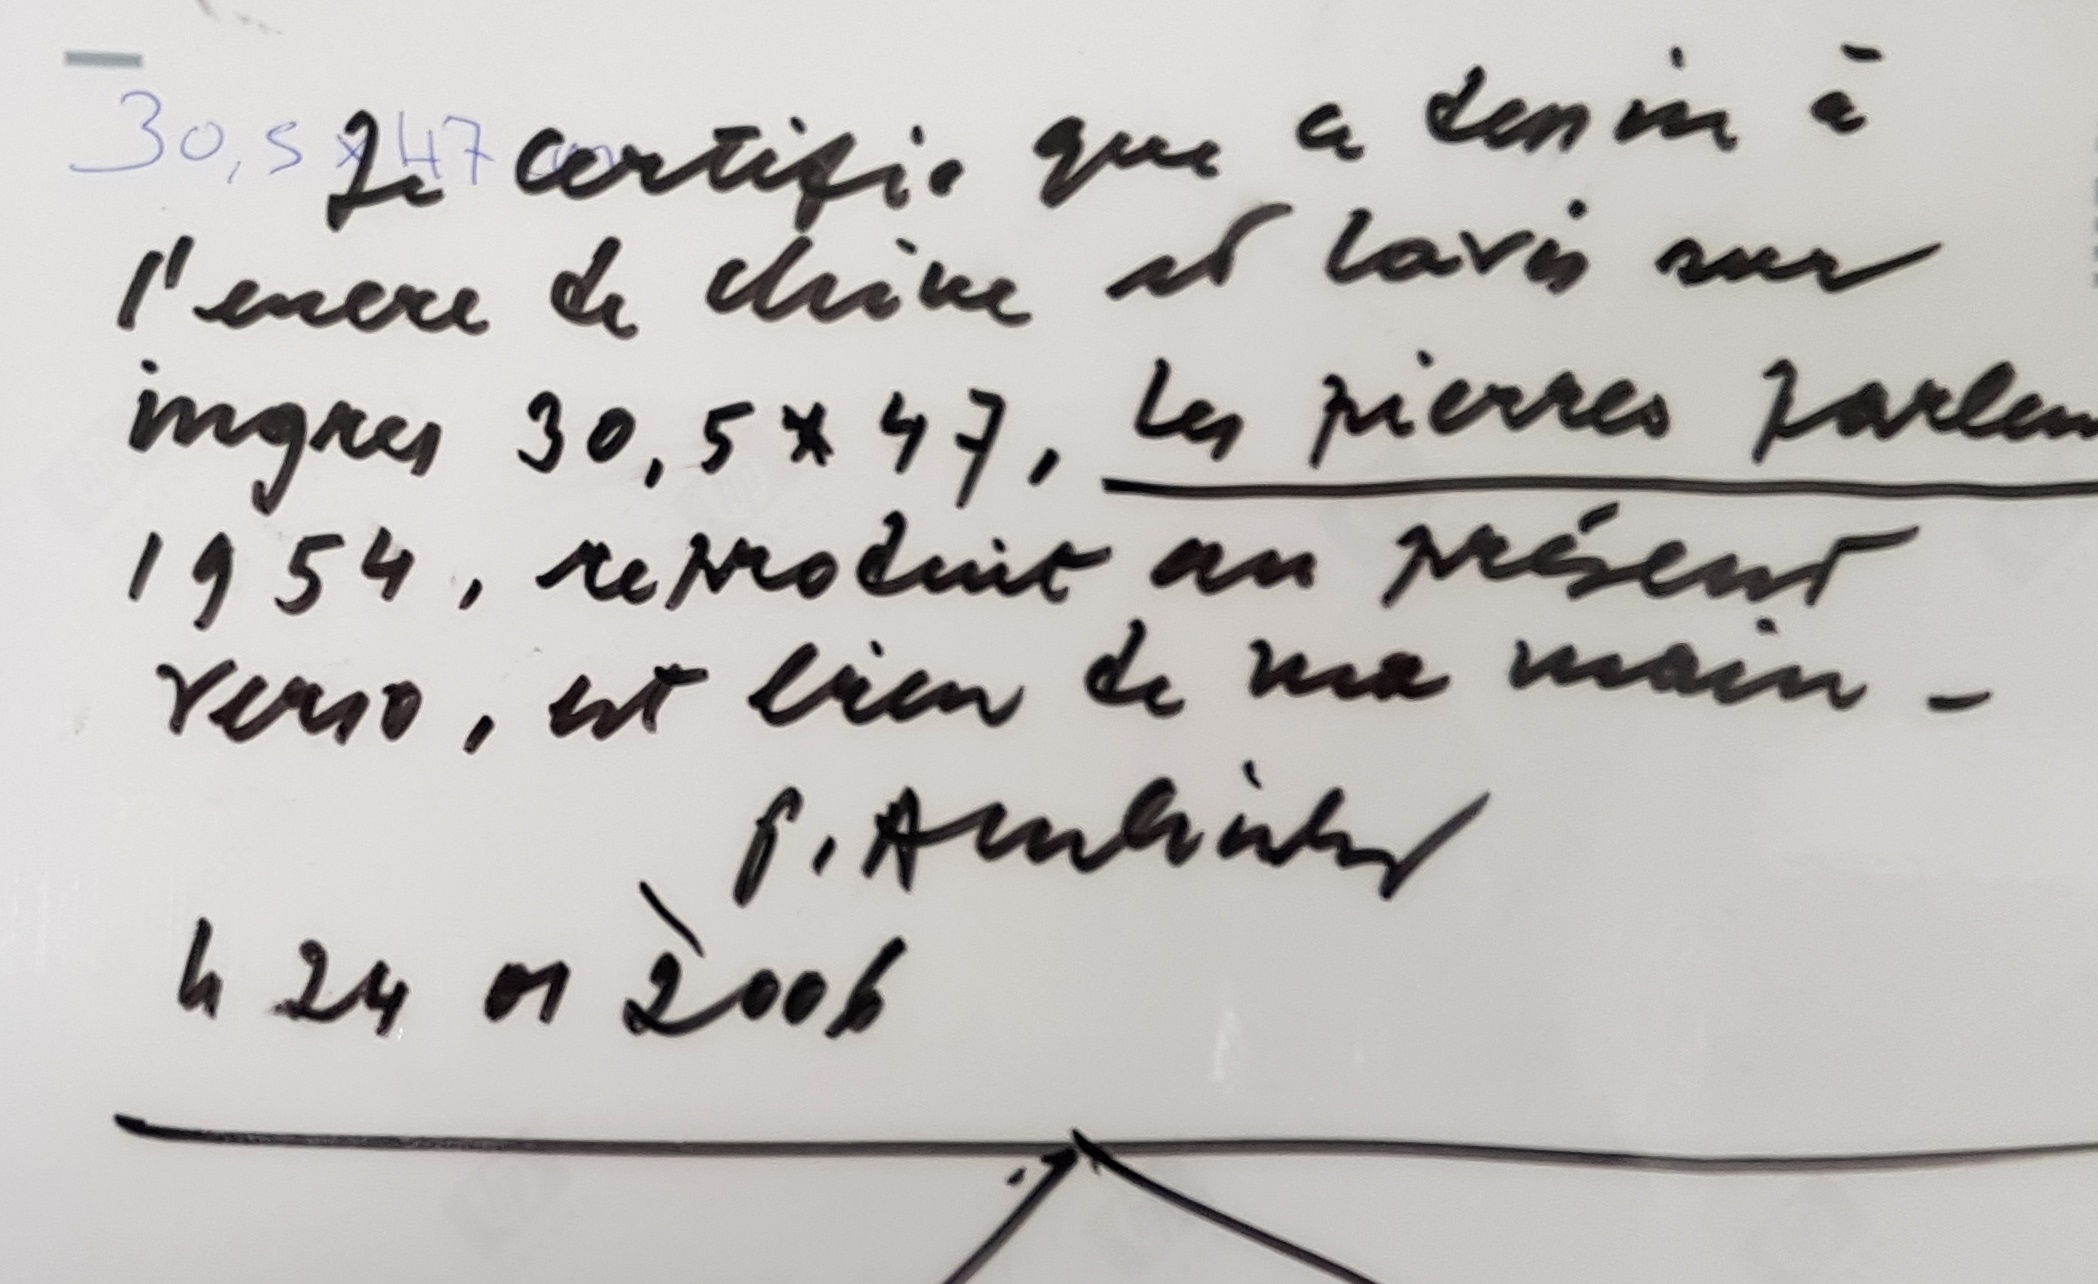 30,5 x 47 cm
Je certifie que ce dessin à
l'encre de chine et lavis sur
ingres 30,5 x 47, Les pierres parlen
1954, reproduit au présent
verso, est bien de ma main -
P.
le 24 01 2006